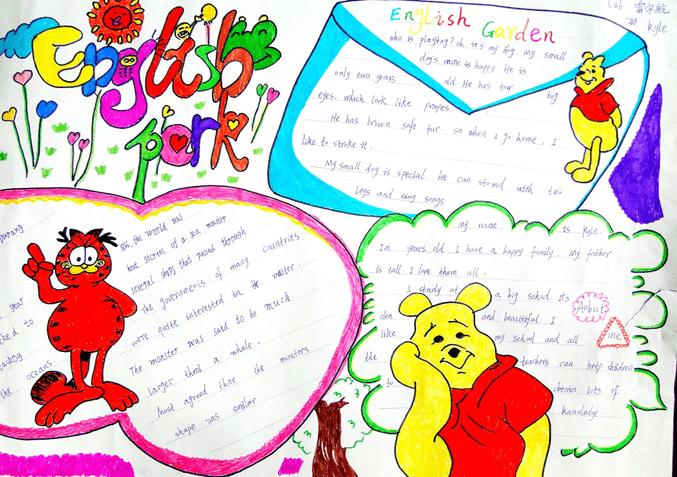 English
park
English Garden
kyle
who is playing? oh it's my dog. My small
dog's name is happy. He is
only two years old He has tow big
eyes. which look like
He has brown soft fur. so when I go home, I
like to stroke it.
My small dog is special. He can stand with
legs and sing songs
the world was
stories of a sea monster
several ships that passed through
The governments of many countries
were quite interested in the matter.
The monster was said to be much
larger than a whale.
Most agreed that the monsters
shape was similar
year
to
the oceans.
my name is kyle.
I'm years old. I have a happy family. My father
is tall. I love them all.
I study at a big school. Its
and beautiful I
like my school and all
the teachers can help children
to obtain lots of
knowledge.
Aobut
me